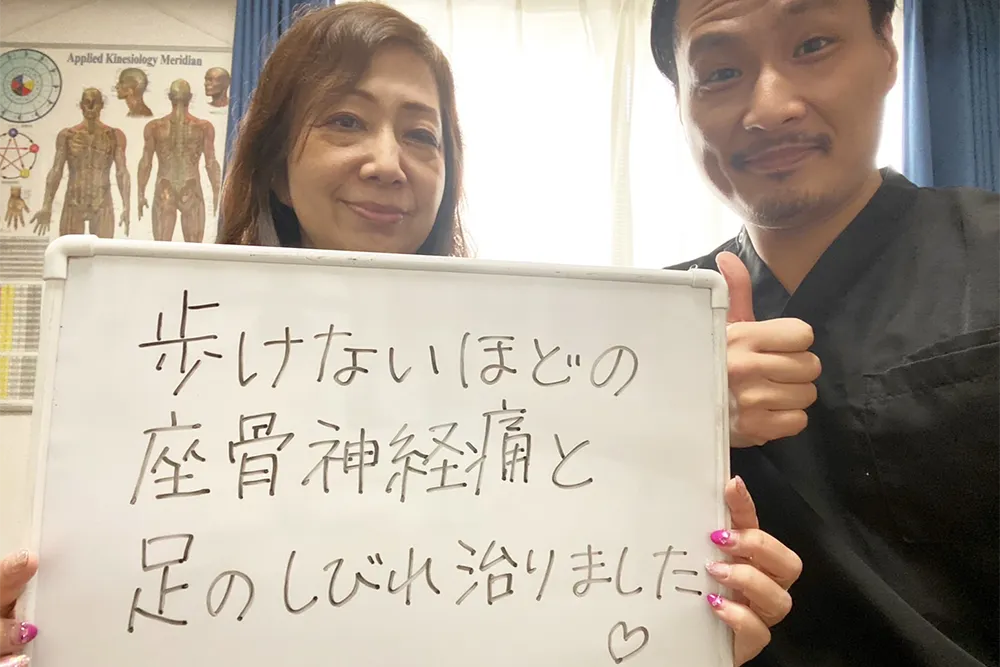 Applied Kinesiology Meridian
歩けないほどの
座骨神経痛と
足のしびれ治りました
♡